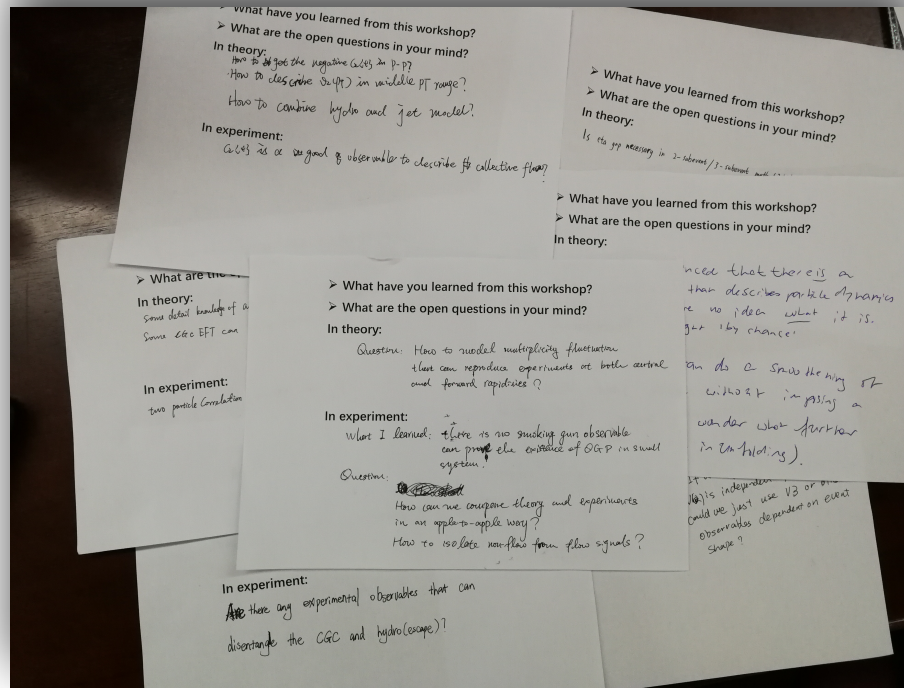 What have you learned from this workshop?
➤ What are the open questions in your mind?
In theory:
How to get the negative C₂{4} in P-P?
How to describe v₂(PT) in middle PT range?
How to combine hydro and jet model?
In experiment:
C₂{4} is a good observable to describe collective flow?
➤ What have you learned from this workshop?
➤ What are the open questions in your mind?
In theory:
Is eta gap necessary in 2-subevent/3-subevent
➤ What have you learned from this workshop?
➤ What are the open questions in your mind?
In theory:
nced that there is a
that describes particle dynamics
e no idea what it is.
ght (by chance)
an do a smoothening of
without imposing a
wonder what further
in unfolding).
➤ What are the
In theory:
Some detail knowledge of a
Some CGC EFT can
In experiment:
two particle Correlation
➤ What have you learned from this workshop?
➤ What are the open questions in your mind?
In theory:
Question: How to model multiplicity fluctuation
that can reproduce experiments at both central
and forward rapidities?
In experiment:
What I learned: there is no smoking gun observable
can prove the existence of QGP in small
system!
Question:
How can we compare theory and experiments
in an apple-to-apple way?
How to isolate nonflow from flow signals?
is independen
could we just use V3 or
observables dependent on event
shape?
In experiment:
Are there any experimental observables that can
disentangle the CGC and hydro(escape)?